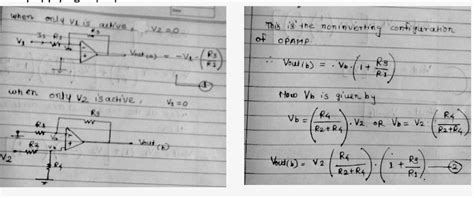 when only V1 is active, V2 = 0
R3
V1 R1
Vout(a) = -V1 (R3/R1)
①
when only V2 is active, V1 = 0
R3
R1
R2
V2
Vb
Vout(b)
R4
This is the noninverting configuration
of OPAMP.
∴ Vout(b) = Vb (1 + R3/R1)
Now Vb is given by
Vb = (R4/R2+R4) . V2 OR Vb = V2 . (R4/R2+R4)
Vout(b) = V2 (R4/R2+R4) . (1 + R3/R1) — ②